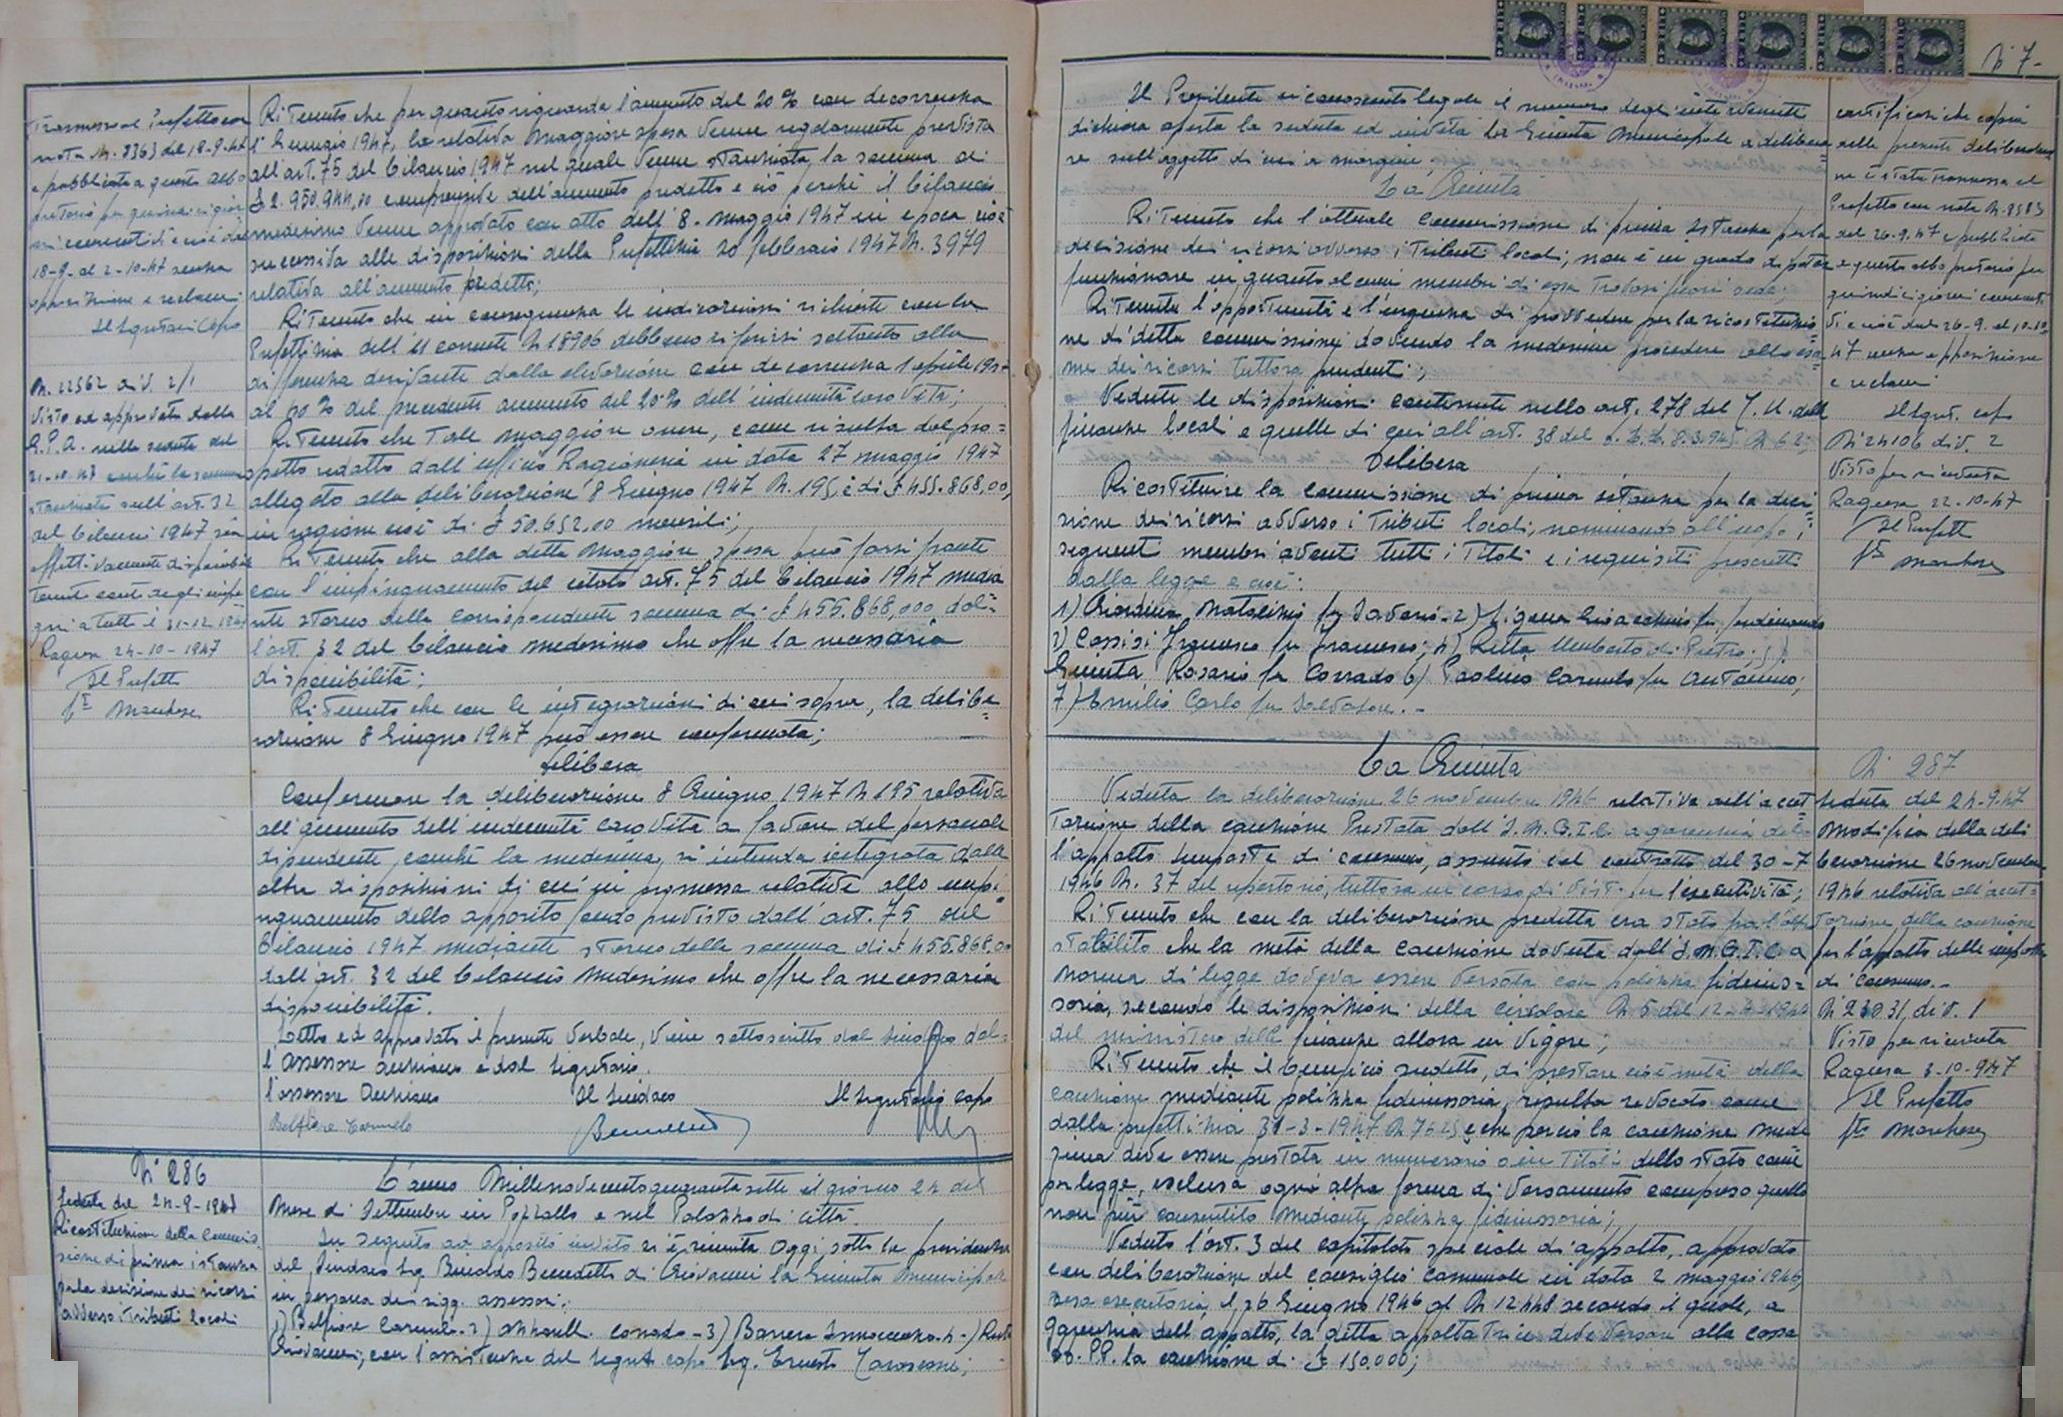 Trasmessa al Prefetto con
nota N. 8363 del 18-9-47
e pubblicata a questo albo
pretorio per quindici giorni
consecutivi e cioè dal
18-9- al 2-10-47 senza
opposizione e reclami
Il Segretario Capo
N. 22562 div. 2/1
Visto ed approvato dalla
G.P.A. nella seduta del
21-10-47 perché la somma
stanziata sull'art. 32
del bilancio 1947 sia
effettivamente disponibile
tenuto conto degli impe
gni a tutt'il 31-12-1947
Ragusa 24-10-1947
Il Prefetto
fto
Ritenuto che per quanto riguarda l'aumento del 20% con decorrenza
1° Gennaio 1947, la relativa maggiore spesa venne regolarmente prevista
all'art. 75 del bilancio 1947 nel quale venne stanziata la somma di
£ 2.950.944,00 comprensiva dell'aumento predetto e ciò perché il bilancio
medesimo venne approvato con atto dell'8 maggio 1947 in epoca cioè
successiva alle disposizioni della Prefettizia 20 febbraio 1947 N. 3979
relativa all'aumento predetto;
Ritenuto che in conseguenza le indicazioni richieste con la
Prefettizia dell'11 corrente N 18906 debbono riferirsi soltanto alla
differenza derivante dalla elevazione con decorrenza 1 aprile 1947
al 50% del precedente aumento del 20% dell'indennità caro vita;
Ritenuto che tale maggiore onere, come risulta dal pro=
spetto redatto dall'ufficio Ragioneria in data 27 maggio 1947
allegato alla deliberazione 8 Giugno 1947 N. 195, è di £ 455.868,00,
in ragione cioè di £ 50.652,00 mensili;
Ritenuto che alla detta maggiore spesa può farsi fronte
con l'impinguamento del citato art. 75 del bilancio 1947 media
nte storno della corrispondente somma di £ 455.868,000 dal=
l'art. 32 del bilancio medesimo che offre la necessaria
disponibilità;
Ritenuto che con le integrazioni di cui sopra, la delibe=
razione 8 Giugno 1947 può essere confermata;
Delibera
Confermare la deliberazione 8 Giugno 1947 N 195 relativa
all'aumento dell'indennità caro vita a favore del personale
dipendente, perché la medesima, si intenda integrata dalle
altre disposizioni di cui in premessa relative allo impi
nguamento dello apposito fondo previsto dall'art. 75 del
bilancio 1947 mediante storno della somma di £ 455.868,00
dall'art. 32 del bilancio medesimo che offre la necessaria
disponibilità.
Letto ed approvato il presente verbale, viene sottoscritto dal sindaco dal=
l'assessore anziano e dal segretario.
l'assessore Anziano Il Sindaco Il Segretario Capo
Belfiore Carmelo
N° 286
Seduta del 24-9-1947
Ricostituzione della Commis=
sione di prima istanza
per la decisione dei ricorsi
avverso i tributi locali
L'anno Millenovecentoquarantasette il giorno 24 del
Mese di Settembre in Pozzallo e nel Palazzo di città.
In seguito ad apposito invito si è riunita oggi sotto la presidenza
del Sindaco Sig. Benedetto di Giovanni la Giunta Municipale
in persona dei sigg. assessori:
1) Belfiore Carmelo - 2) Corrado - 3) Barrera Innocenzo - 4)
Giovanni; con l'assistenza del Segret. capo Sig. Ernesto
N° 7-
Il Presidente riconosciuto legale il numero degli intervenuti
dichiara aperta la seduta ed invita la Giunta Municipale a delibera=
re sull'oggetto di cui a margine;
La Giunta
Ritenuto che l'attuale Commissione di prima istanza per la
decisione dei ricorsi avverso i tributi locali, non è in grado di poter
funzionare in quanto alcuni membri di essa trovansi fuori sede;
Ritenuta l'opportunità e l'urgenza di provvedere per la ricostituzio
ne di detta commissione dovendo la medesima procedere allo esa
me dei ricorsi tuttora pendenti;
Vedute le disposizioni contenute nello art. 278 del T. U. delle
finanze locali e quelle di cui all'art. 38 del D.L.L. 8.3.945 N 62;
Delibera
Ricostituire la commissione di prima istanza per la deci
sione dei ricorsi avverso i tributi locali, nominando all'uopo i
seguenti membri aventi tutti i titoli e i requisiti prescritti
dalla legge e cioè:
1) Giardina Natalino fu Saverio - 2) Gioacchino fu Ferdinando
3) Cassisi Francesco fu Francesco; 4) Umberto di Pietro; 5)
Giunta Rosario fu Corrado 6) Paolino Carmelo fu Antonino;
7) Emilio Carlo fu Salvatore.-
certificasi che copia
della presente deliberazio
ne è stata trasmessa al
Prefetto con nota N. 8583
del 26-9-47 e pubblicata
a questo albo pretorio per
quindici giorni consecuti
vi e cioè dal 26-9- al 10-10
47 senza opposizione
e reclami
Il Segret. capo
N° 24106 div. 2
Visto per ricevuta
Ragusa 22-10-47
Il Prefetto
fto
La Giunta
Veduta la deliberazione 26 novembre 1946 relativa all'accet=
tazione della cauzione prestata dall'I.N.G.I.C. a garenzia del=
l'appalto imposte di consumo, assunto col contratto del 30-7
1946 N. 37 del repertorio, tuttora in corso di visto per l'esecutività;
Ritenuto che con la deliberazione predetta era stato fra l'altro
stabilito che la metà della cauzione dovuta dall'I.N.G.I.C. a
norma di legge doveva essere versata con polizza fideius=
soria, secondo le disposizioni della circolare N 5 del 12-4-1940
del ministero delle finanze allora in vigore;
Ritenuto che il beneficio suddetto, di prestare cioè metà della
cauzione mediante polizza fideiussoria, risulta revocato come
dalla prefettizia 31-3-1947 N 7625 e che perciò la cauzione mede
sima deve essere prestata in numerario o in titoli dello stato come
per legge, esclusa ogni altra forma di versamento compreso quello
non più consentito mediante polizza fideiussoria;
Veduto l'art. 3 del capitolato speciale di appalto, approvato
con deliberazione del consiglio comunale in data 2 maggio 1946,
resa esecutoria il 26 Giugno 1946 al N 12448 secondo il quale, a
garenzia dell'appalto, la ditta appaltatrice deve versare alla cassa
DD. PP. la cauzione di £ 150.000;
N° 287
Seduta del 24-9-47
Modifica della deli
berazione 26 novembre
1946 relativa all'accet=
tazione della cauzione
per l'appalto delle imposte
di Consumo.-
N° 23031, div. 1
Visto per ricevuta
Ragusa 3-10-947
Il Prefetto
fto